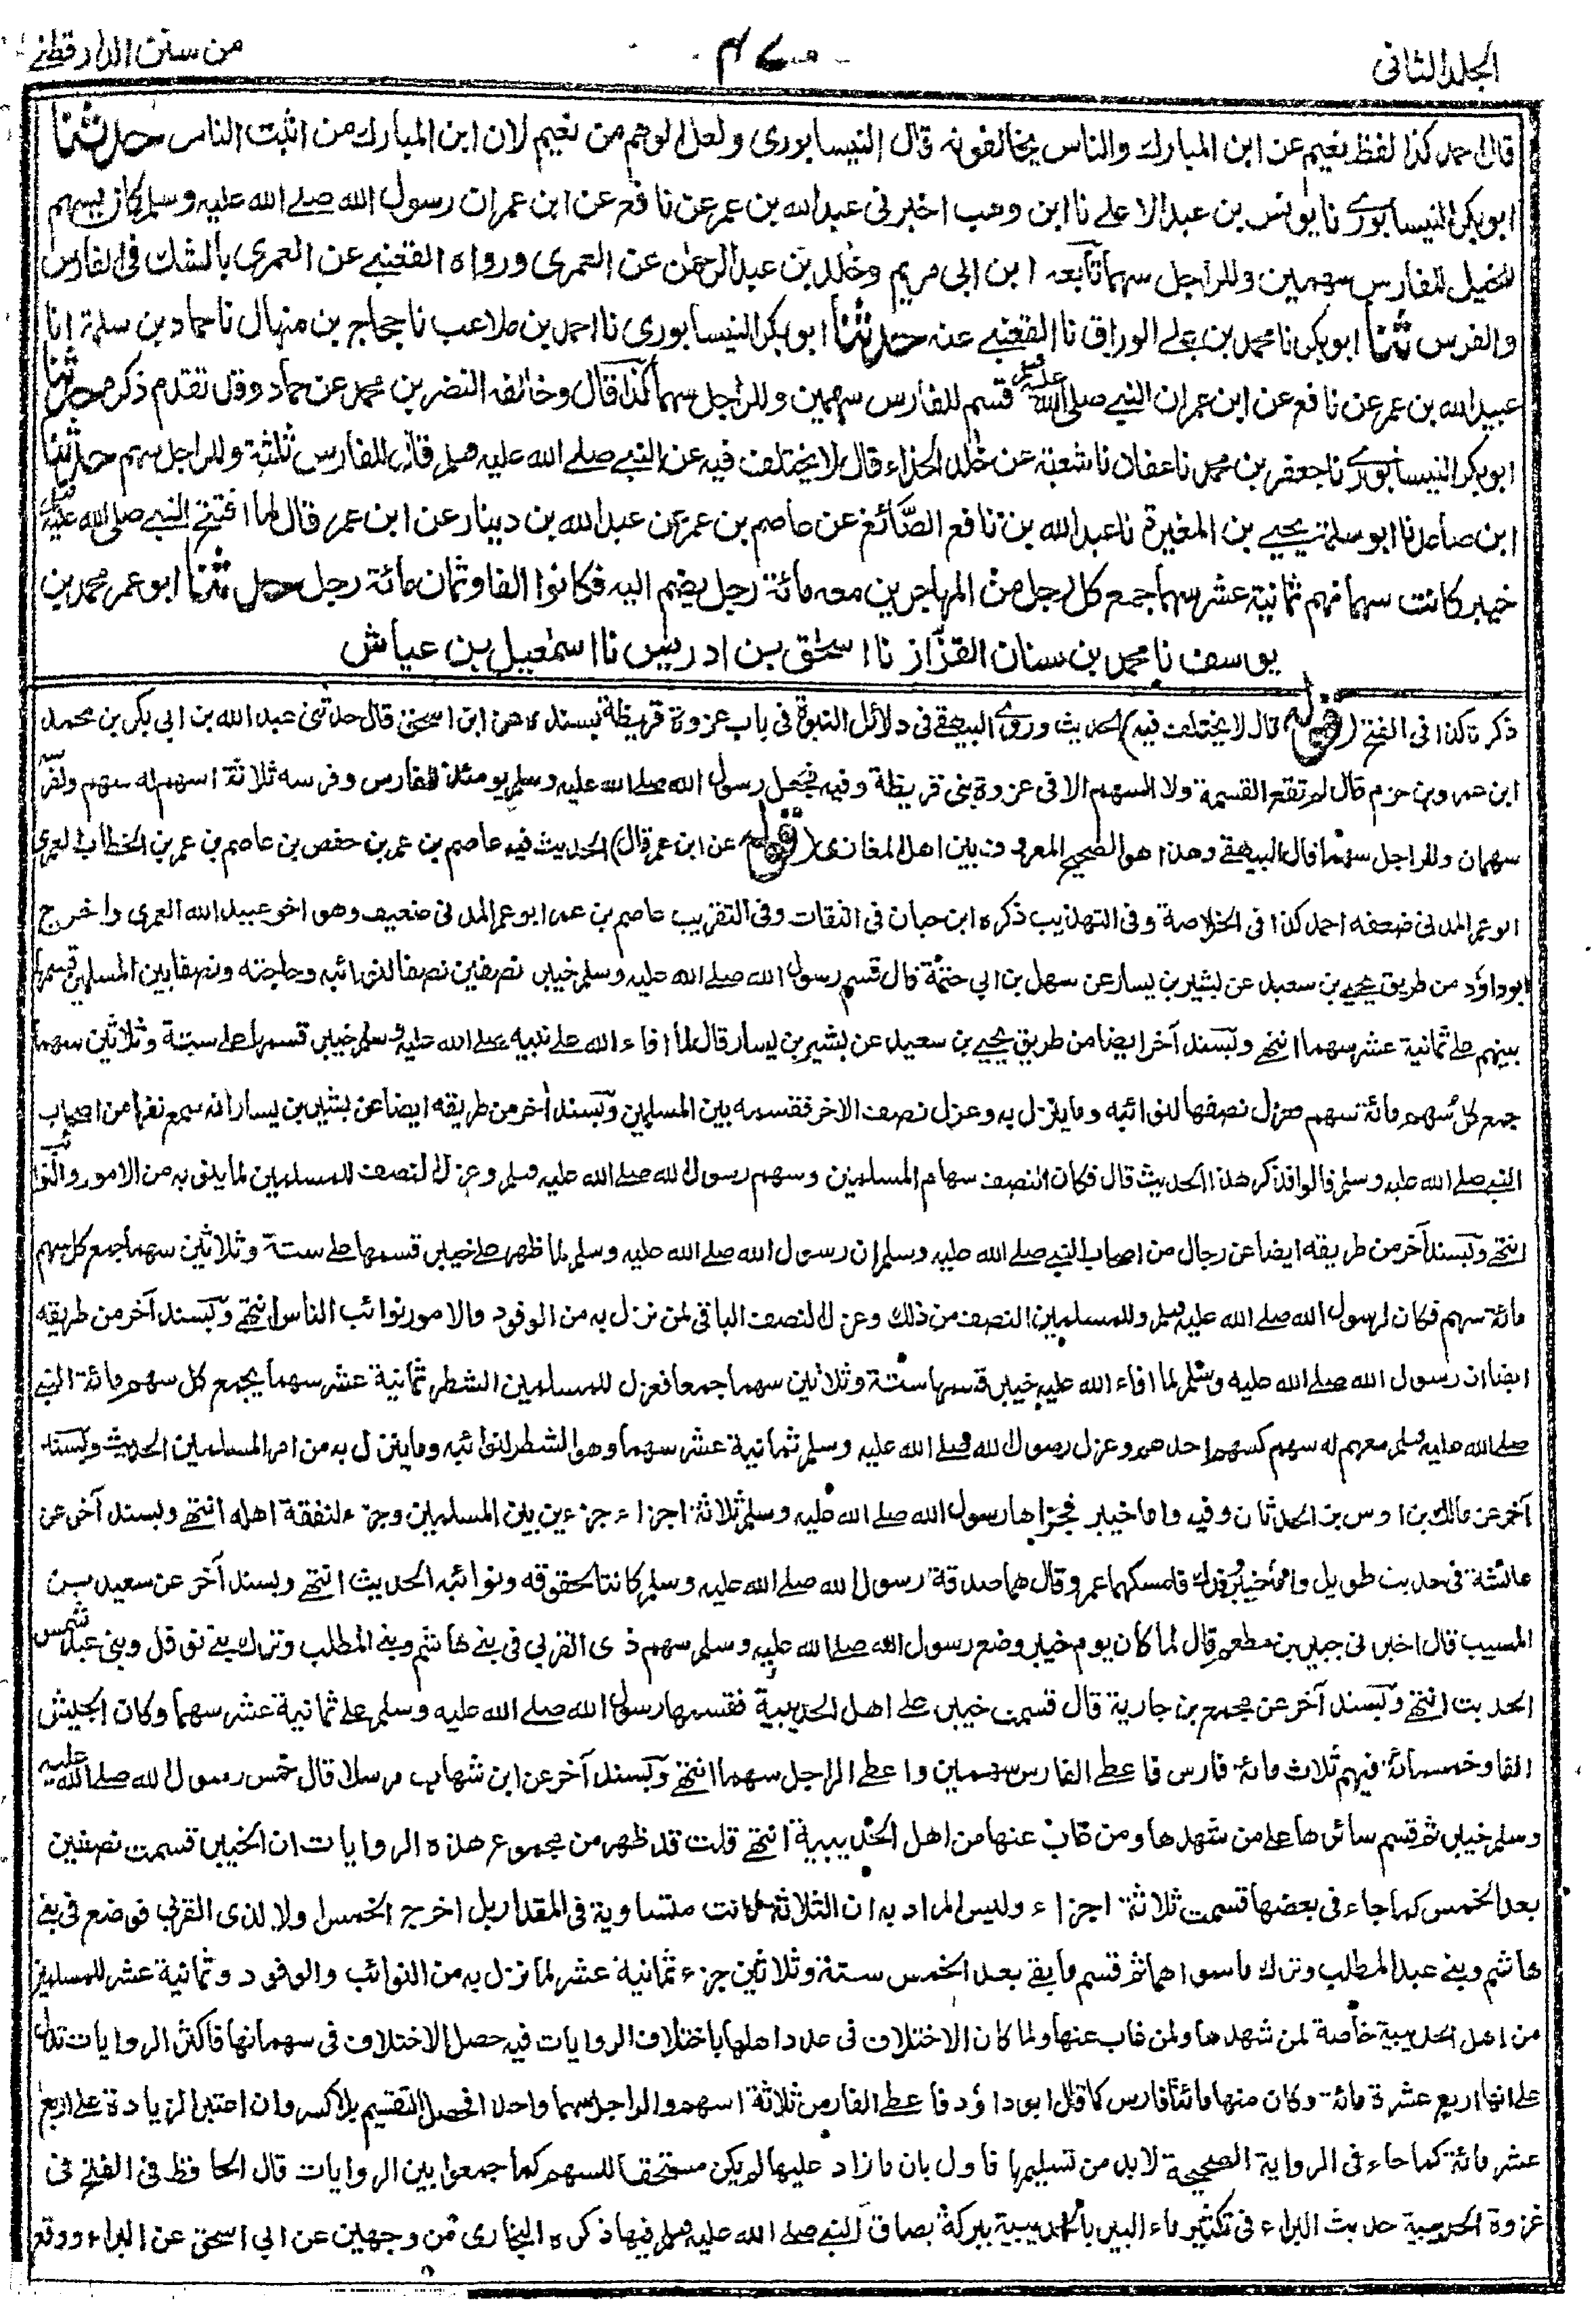 الجلد الثانى
٤٧٠
من سنن الدارقطنے
قال احمد كذا لفظ نعيم عن ابن المبارك والناس يخالفونه قال النيسابورى ولعل الوهم من نعيم لان ابن المبارك من اثبت الناس حدثنا
ابوبكر النيسابورے نا يونس بن عبد الاعلے نا ابن وهب اخبرنى عبد الله بن عمر عن نافع عن ابن عمران رسول الله صلے الله عليه وسلم كان يسهم
للخيل للفارس سهمين وللراجل سهما تابعه ابن ابى مريم وخلد بن عبد الرحمٰن عن العمرى ورواه القعنبے عن العمرى بالشك فى الفارس
والفرس ثنا ابوبكر نا محمد بن علے الوراق نا القعنبے عنه حدثنا ابوبكر النيسابورى نا احمد بن ملاعب نا حجاج بن منهال نا حماد بن سلمة انا
عبيد الله بن عمر عن نافع عن ابن عمران النبے صلى الله عليه وسلم قسم للفارس سهمين وللراجل سهما كذا قال وخالفه النضر بن محمد عن حماد وقد تقدم ذكره حدثنا
ابوبكر النيسابورے نا جعفر بن محمد نا عفان نا شعبة عن خلد الحذاء قال لا يختلف فيه عن النبے صلے الله عليه وسلم قال للفارس ثلثة وللراجل سهم حدثنا
ابن صاعد نا ابو سلمة يحيے بن المغيرة نا عبد الله بن نافع الصّائغ عن عاصم بن عمر عن عبد الله بن دينار عن ابن عمر قال لما افتتح النبے صلى الله عليه وسلم
خيبر كانت سهمانهم ثمانية عشر سهما جمع كل رجل من المهاجرين معه مائة رجل يضم اليه فكانوا الفا وثمان مائة رجل حدثنا ابو عمر محمد بن
يوسف نا محمد بن سنان القزّاز نا اسحٰق بن ادريس نا اسمٰعيل بن عياش
ذكرته كذا فى الفتح (قوله قال لا يختلف فيه) الحديث وروے البيهقے فى دلائل النبوة فى باب غزوة قريظة بسنده عن ابن اسحٰق قال حدثنى عبد الله بن ابى بكر بن محمد
ابن عمرو بن حزم قال لم تقع القسمة ولا السهم الا فى غزوة بنى قريظة وفيه فجعل رسول الله صلے الله عليه وسلم يومئذ للفارس وفرسه ثلاثة اسهم له سهم ولفرسه
سهمان وللراجل سهما قال البيهقے وهذا هو الصحيح المعروف بين اهل المغازى (قوله عن ابن عمر قال) الحديث فيه عاصم بن عمر بن حفص بن عاصم بن عمر بن الخطاب العمرى
ابو عمر المدنى ضعفه احمد كذا فى الخلاصة وفى التهذيب ذكره ابن حبان فى الثقات وفى التقريب عاصم بن عمر ابو عمر المدنى ضعيف وهو اخو عبيد الله العمرى واخرج
ابوداؤد من طريق يحيے بن سعيد عن بشير بن يسار عن سهل بن ابى حثمة قال قسم رسول الله صلے الله عليه وسلم خيبر نصفين نصفا لنوائبه وحاجته ونصفا بين المسلمين قسمها
بينهم علے ثمانية عشر سهما انتهے وبسند آخر ايضا من طريق يحيے بن سعيد عن بشير بن يسار قال لما افاء الله علے نبيه صلے الله عليه وسلم خيبر قسمها علے ستة وثلاثين سهما
جمع كل سهم مائة سهم فعزل نصفها لنوائبه وما ينزل به وعزل نصف الاخر فقسمه بين المسلمين وبسند اخر من طريقه ايضا عن بشير بن يسار انه سمع نفرا من اصحاب
النبے صلے الله عليه وسلم قالوا فذكر هذا الحديث قال فكان النصف سهام المسلمين وسهم رسول الله صلے الله عليه وسلم وعزل النصف للمسلمين لما ينوبه من الامور والنوائب
انتهے وبسند آخر من طريقه ايضا عن رجال من اصحاب النبے صلے الله عليه وسلم ان رسول الله صلے الله عليه وسلم لما ظهر علے خيبر قسمها علے ستة وثلاثين سهما جمع كل سهم
مائة سهم فكان لرسول الله صلے الله عليه وسلم وللمسلمين النصف من ذلك وعزل النصف الباقى لمن نزل به من الوفود والامور نوائب الناس انتهے وبسند آخر من طريقه
ايضا ان رسول الله صلے الله عليه وسلم لما افاء الله عليه خيبر قسمها ستة وثلاثين سهما جمعا فعزل للمسلمين الشطر ثمانية عشر سهما يجمع كل سهم مائة النبے
صلے الله عليه وسلم معهم له سهم كسهم احدهم وعزل رسول الله صلے الله عليه وسلم ثمانية عشر سهما وهو الشطر لنوائبه وما ينزل به من امر المسلمين الحديث وبسند
آخر عن مالك بن اوس بن الحدثان وفيه واما خيبر فجزاها رسول الله صلے الله عليه وسلم ثلاثة اجزاء جزءين بين المسلمين وجزء لنفقة اهله انتهے وبسند آخر عن
عائشة فى حديث طويل واما خيبر وفدك فامسكهما عمر وقال هما صدقة رسول الله صلے الله عليه وسلم كانتا لحقوقه ونوائبه الحديث انتهے وبسند آخر عن سعيد بن
المسيب قال اخبرنى جبير بن مطعم قال لما كان يوم خيبر وضع رسول الله صلے الله عليه وسلم سهم ذى القربى فى بنے هاشم وبنے المطلب وترك بنے نوفل وبنى عبد شمس
الحديث انتهے وبسند آخر عن مجمع بن جارية قال قسمت خيبر علے اهل الحديبية فقسمها رسول الله صلے الله عليه وسلم علے ثمانية عشر سهما وكان الجيش
الفا وخمسمائة فيهم ثلاث مائة فارس فاعطے الفارس سهمين واعطے الراجل سهما انتهے وبسند آخر عن ابن شهاب مرسلا قال خمس رسول الله صلے الله عليه
وسلم خيبر ثم قسم سائرها علے من شهدها ومن غاب عنها من اهل الحديبية انتهے قلت قد ظهر من مجموع هذه الروايات ان الخيبر قسمت نصفين
بعد الخمس كما جاء فى بعضها قسمت ثلاثة اجزاء وليس المراد به ان الثلاثة كانت متساوية فى المقدار بل اخرج الخمس اولا لذى القربى فوضع فى بنے
هاشم وبنے عبد المطلب وترك ما سواهما ثم قسم ما بقے بعد الخمس ستة وثلاثين جزء ثمانية عشر لما نزل به من النوائب والوفود وثمانية عشر للمسلمين
من اهل الحديبية خاصة لمن شهدها ولمن غاب عنها ولما كان الاختلاف فى عدد اهلها باختلاف الروايات فيه حصل الاختلاف فى سهمانها فاكثر الروايات تدل
علے انها اربع عشرة مائة وكان منها مائتا فارس كما قال ابوداؤد فاعطے الفارس ثلاثة اسهم والراجل سهما واحدا فحصل التقسيم بلا كسر وان اعتبر الزيادة علے اربع
عشر مائة كما جاء فى الرواية الصحيحة لابد من تسليمها فاول بان ما زاد عليها لم يكن مستحقا للسهم كما جمعوا بين الروايات قال الحافظ فى الفتح فى
غزوة الحديبية حديث البراء فى تكثير ماء البير بالحديبية ببركة بصاق النبے صلے الله عليه وسلم فيها ذكره البخارى من وجهين عن ابى اسحٰق عن البراء ووقع